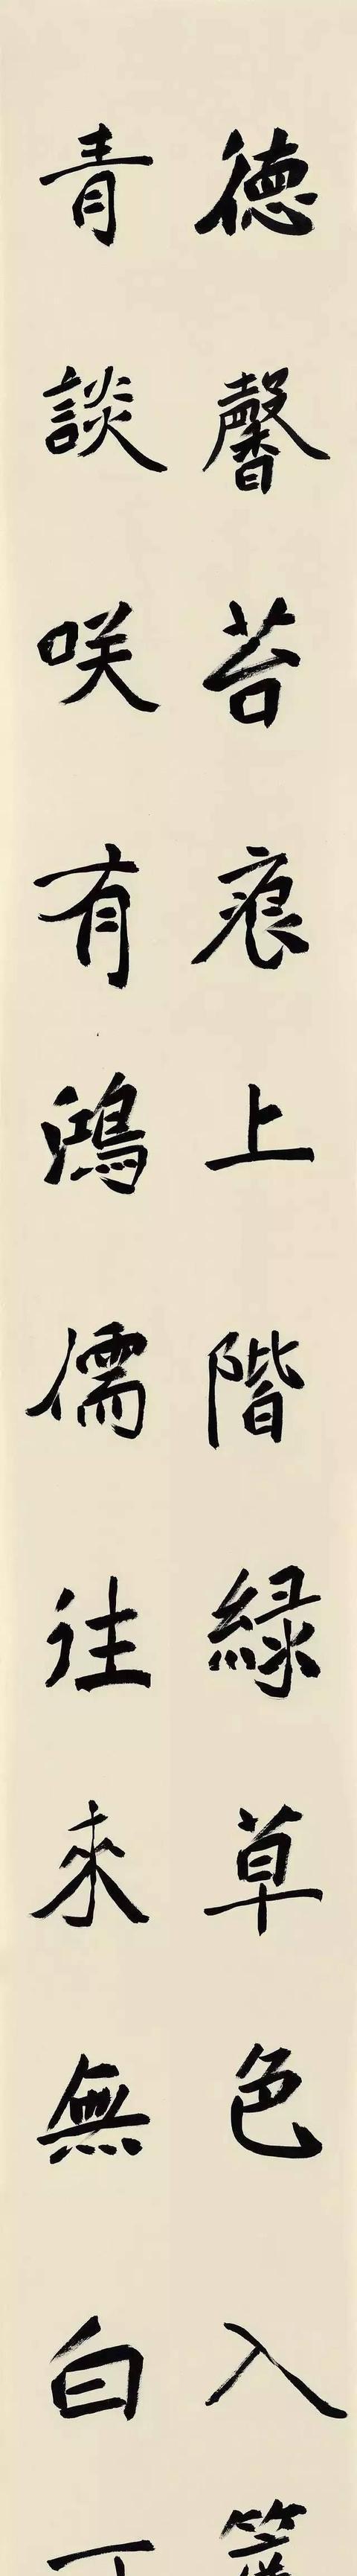 德馨苔痕上階緑草色入簾
青談咲有鴻儒往來無白丁